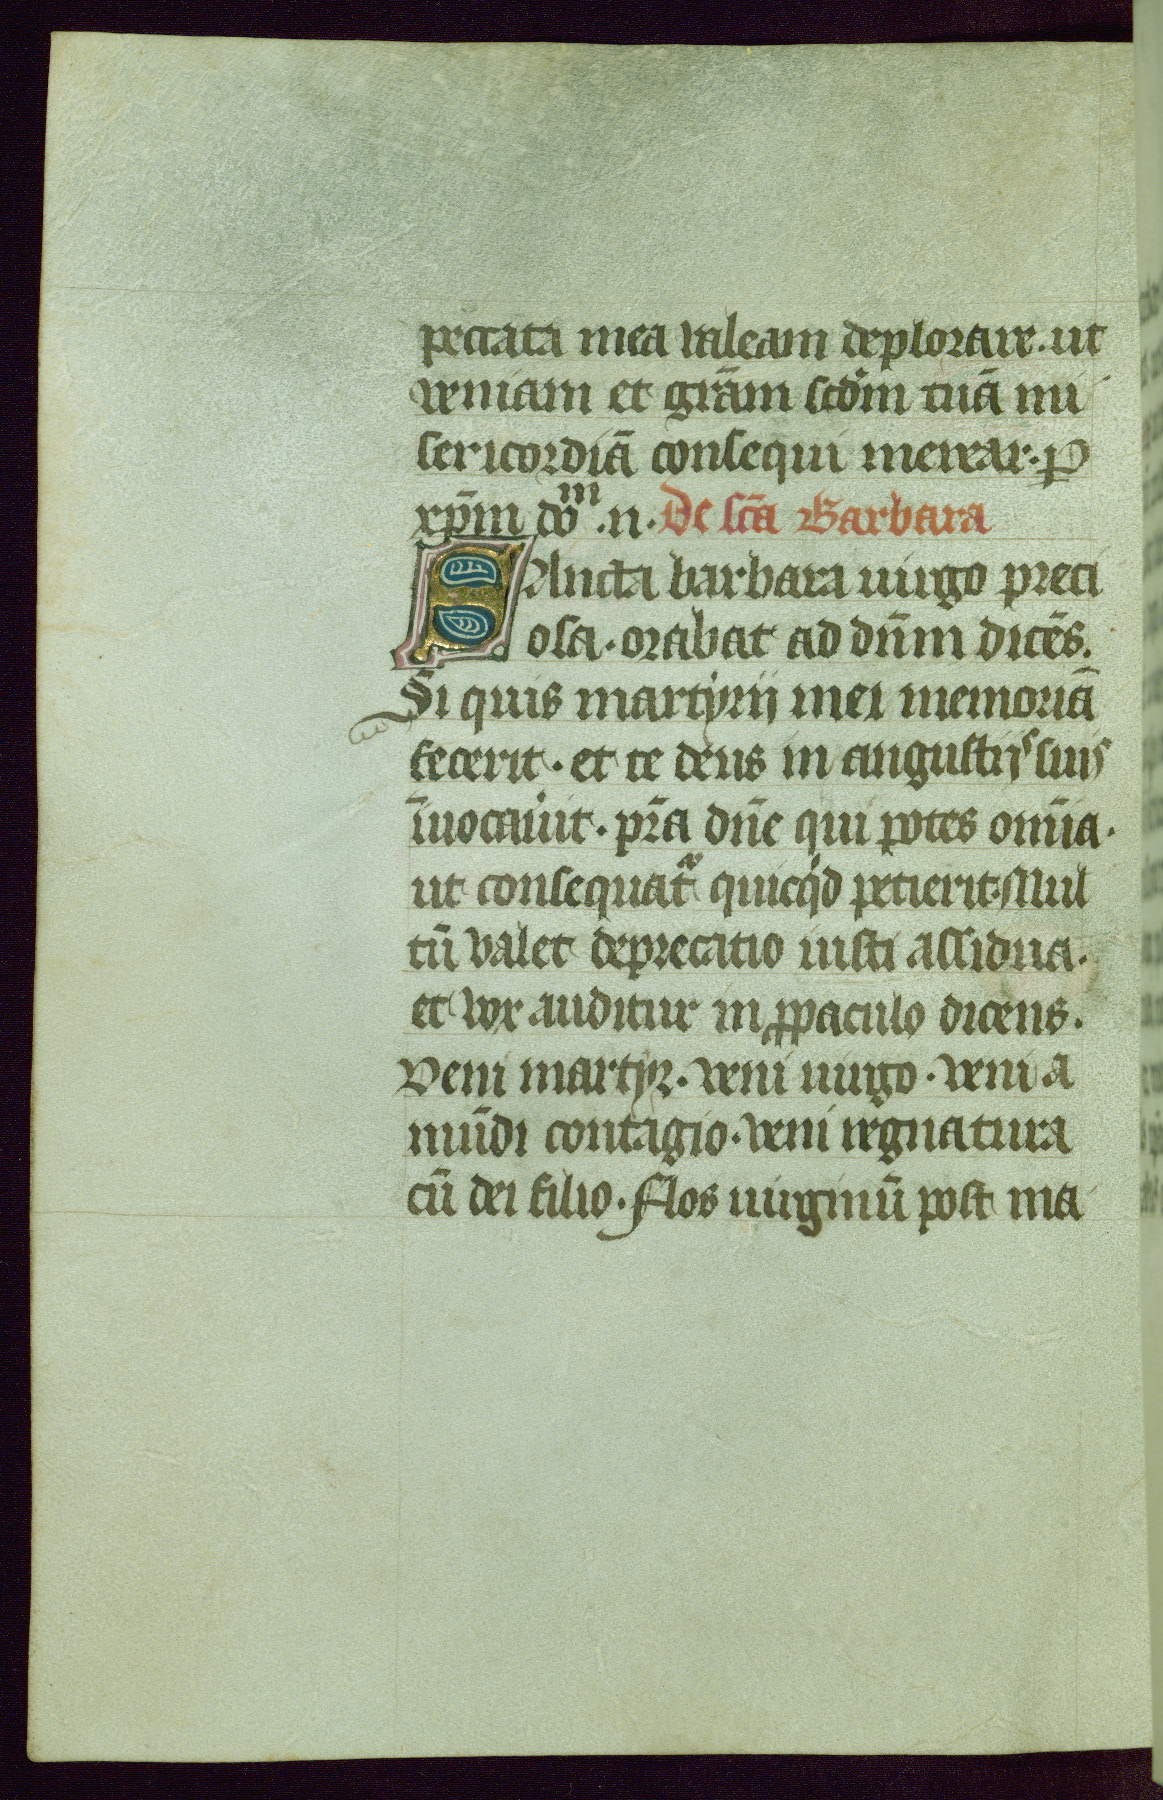 peccata mea valeam deplorare. ut
veniam et grām scđm tuā mi
sericordiā consequi merear. P
xp̄m do᷒ᵐ .n. De scā Barbara
Sancta barbara uirgo preci
osa. orabat ad dn̄m dicēs.
Si quis martyrii mei memoriā
fecerit. et te deus in angustijs suis
īuocauit. pr̄a dn̄e qui potes omīa.
ut consequat᷒ quicqͥd petierit. Mul
tū valet deprecatio iusti assidua.
et vox auditur in ꝓpaculo dicens.
Veni martyr. veni uirgo. veni a
mūdi contagio. veni regnatura
cū dei filio. Flos uirginū post ma